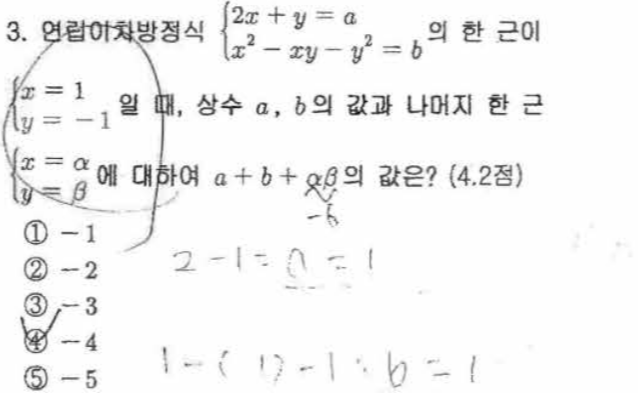 3. 연립이차방정식 {2x + y = a
x² - xy - y² = b 의 한 근이
{x = 1
y = -1 일 때, 상수 a, b의 값과 나머지 한 근
{x = α
y = β 에 대하여 a + b + αβ의 값은? (4.2점)
-6
① -1
② -2
③ -3
④ -4
⑤ -5
2 - 1 = a = 1
1 - (-1) - 1 = b = 1